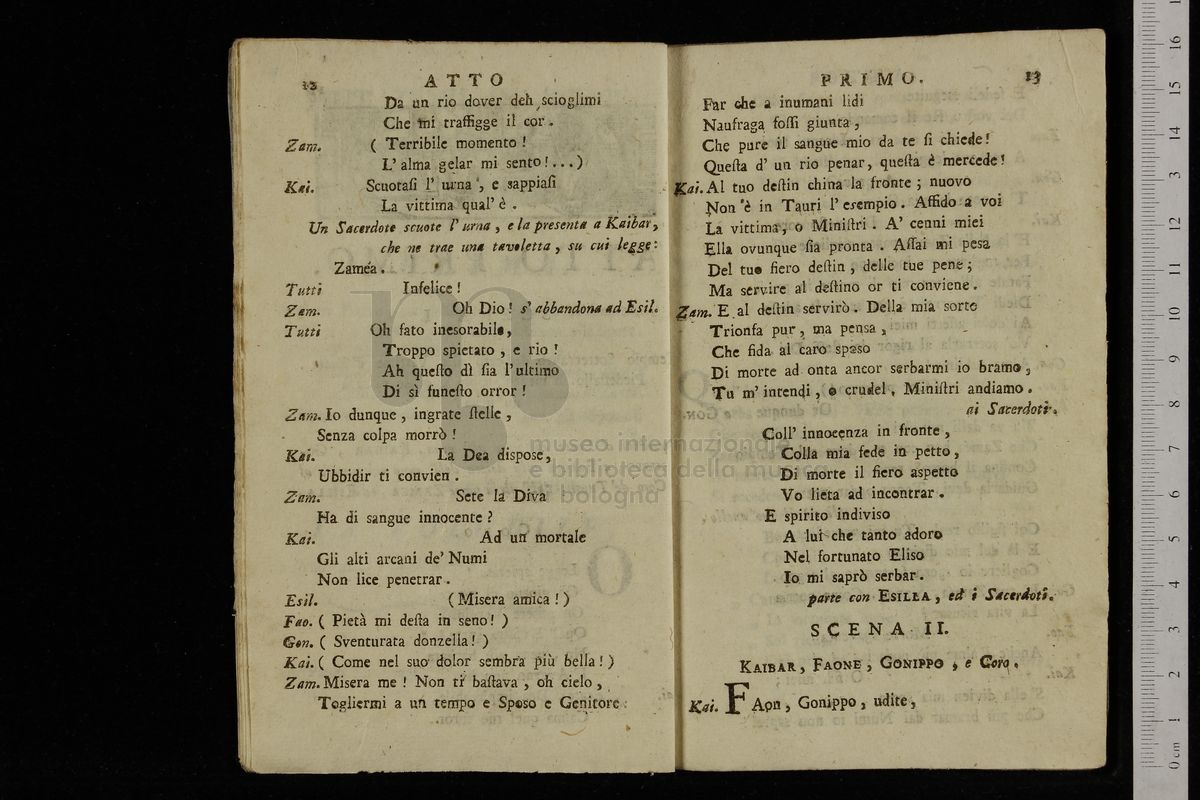 12 ATTO
Da un rio dover deh scioglimi
Che mi traffigge il cor.
Zam. ( Terribile momento !
L' alma gelar mi sento!...)
Kai. Scuotasi l' urna, e sappiasi
La vittima qual' è.
Un Sacerdote scuote l' urna, e la presenta a Kaibar,
che ne trae una tavoletta, su cui legge:
Zaméa.
Tutti Infelice !
Zam. Oh Dio ! s' abbandona ad Esil.
Tutti Oh fato inesorabile,
Troppo spietato, e rio !
Ah questo dì sia l'ultimo
Di sì funesto orror !
Zam. Io dunque, ingrate stelle,
Senza colpa morrò !
Kai. La Dea dispose,
Ubbidir ti convien.
Zam. Sete la Diva
Ha di sangue innocente ?
Kai. Ad un mortale
Gli alti arcani de' Numi
Non lice penetrar.
Esil. (Misera amica !)
Fao. ( Pietà mi desta in seno! )
Gon. ( Sventurata donzella! )
Kai. ( Come nel suo dolor sembra più bella!)
Zam. Misera me ! Non ti bastava, oh cielo,
Togliermi a un tempo e Sposo e Genitore
PRIMO. 13
Far che a inumani lidi
Naufraga fossi giunta,
Che pure il sangue mio da te si chiede!
Questa d' un rio penar, questa è mercede!
Kai. Al tuo destin china la fronte; nuovo
Non è in Tauri l' esempio. Affido a voi
La vittima, o Ministri. A' cenni miei
Ella ovunque sia pronta. Assai mi pesa
Del tuo fiero destin, delle tue pene;
Ma servire al destino or ti conviene.
Zam. E al destin servirò. Della mia sorte
Trionfa pur, ma pensa,
Che fida al caro sposo
Di morte ad onta ancor serbarmi io bramo,
Tu m' intendi, o crudel, Ministri andiamo.
ai Sacerdoti.
Coll' innocenza in fronte,
Colla mia fede in petto,
Di morte il fiero aspetto
Vo lieta ad incontrar.
E spirito indiviso
A lui che tanto adoro
Nel fortunato Eliso
Io mi saprò serbar.
parte con ESILLA, ed i Sacerdoti.
SCENA II.
KAIBAR, FAONE, GONIPPO, e Coro.
Kai. FAon, Gonippo, udite,
museo internazionale
e biblioteca della musica
di bologna